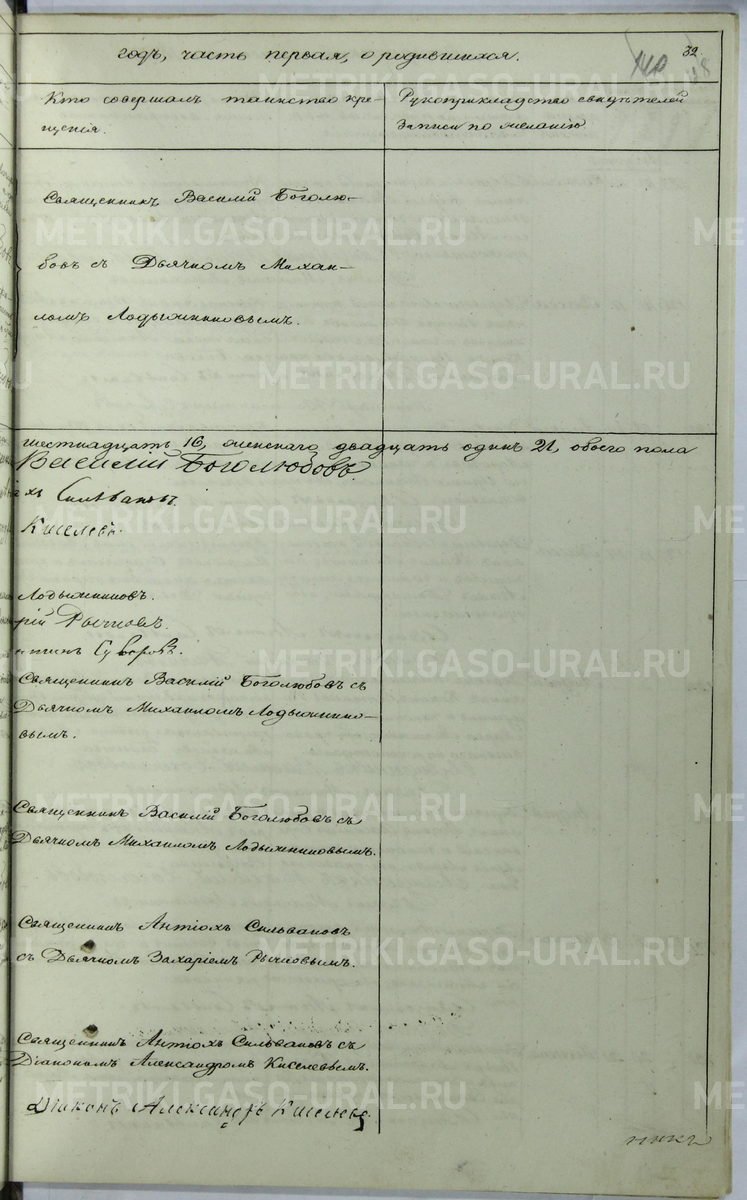 32
140
118
годъ, часть первая, о родившихся.
Кто совершалъ таинство кре-
щенія.
Рукоприкладство свидѣтелей
записи по желанію.
Священникъ Василій Боголю-
бовъ съ Дьячкомъ Михаи-
ломъ Лодыжниковымъ.
шестнадцать 16, женскаго двадцать одинъ 21, обоего пола
Василій Боголюбовъ.
іхъ Сильвановъ.
Киселевъ.
Лодыжниковъ.
рій Рычковъ.
Суворовъ.
Священникъ Василій Боголюбовъ съ
Дьячкомъ Михаиломъ Лодыжнико-
вымъ.
Священникъ Василій Боголюбовъ съ
Дьячкомъ Михаиломъ Лодыжниковымъ.
Священникъ Антіохъ Сильвановъ
съ Дьячкомъ Захаріемъ Рычковымъ.
Священникъ Антіохъ Сильвановъ съ
Діакономъ Александромъ Киселевымъ.
Діаконъ Александръ Киселевъ
METRIKI.GASO-URAL.RU